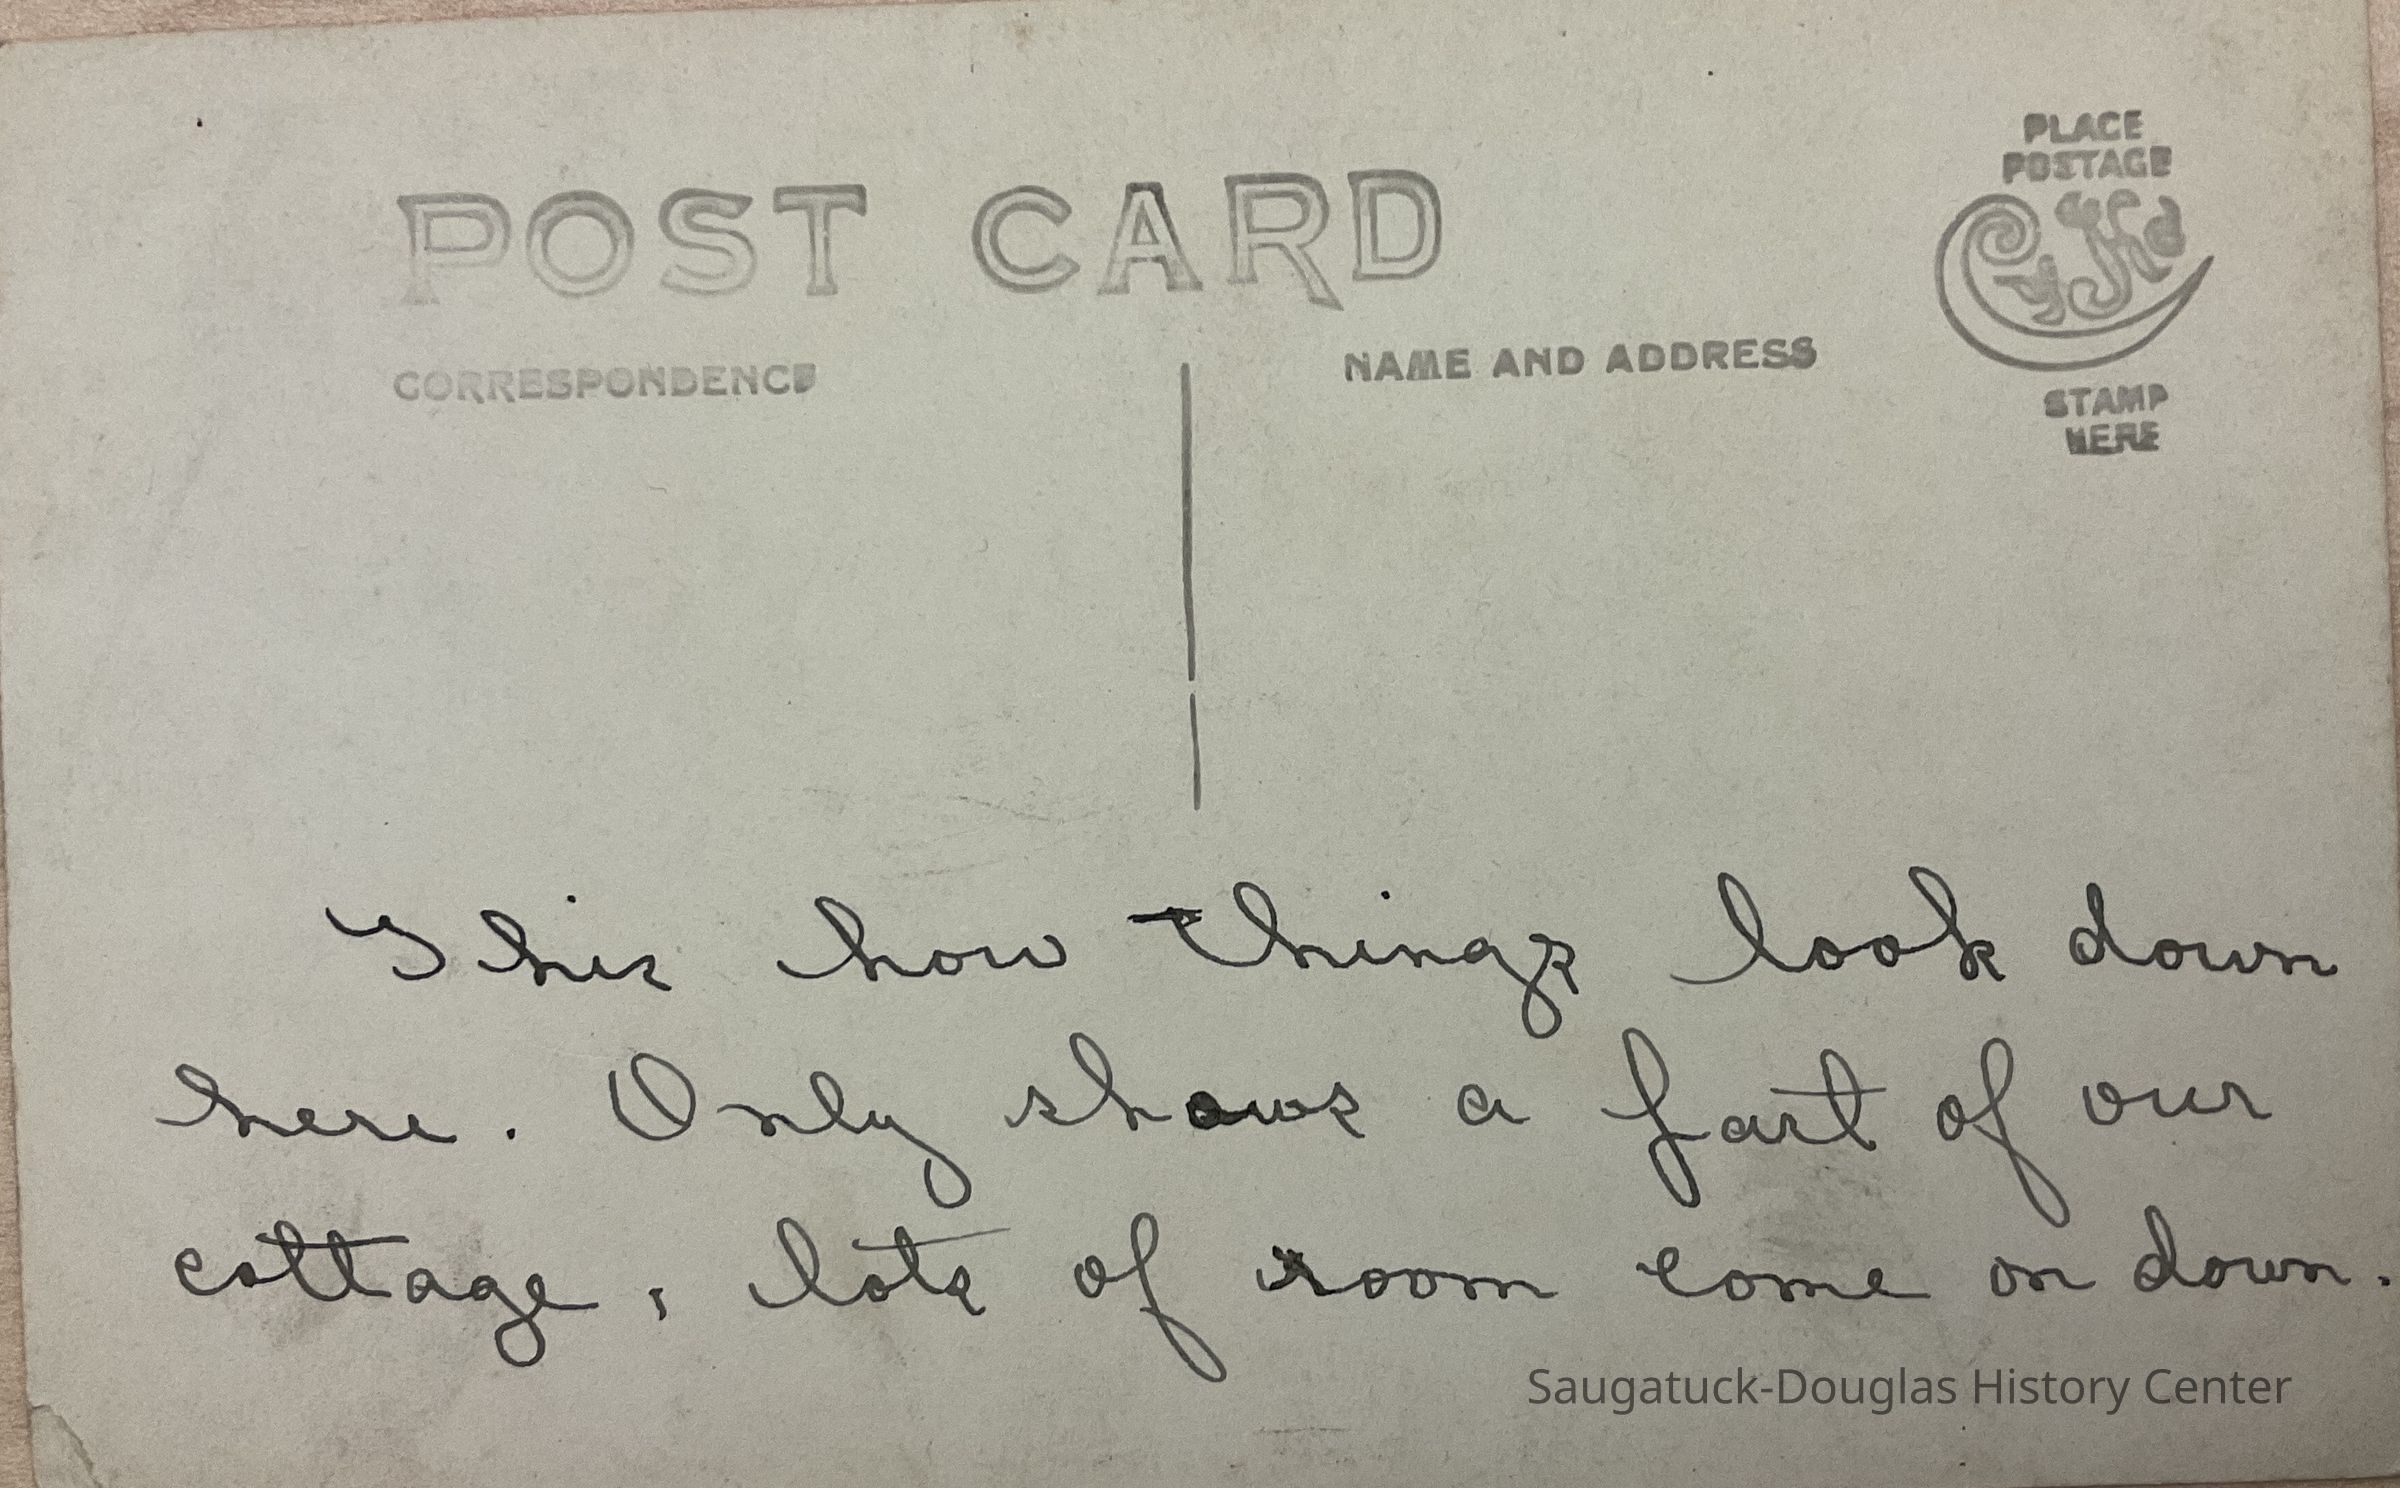 POST CARD
CORRESPONDENCE
NAME AND ADDRESS
PLACE
POSTAGE
STAMP
HERE
This how things look down
here. Only shows a part of our
cottage, lots of room come on down.
Saugatuck-Douglas History Center